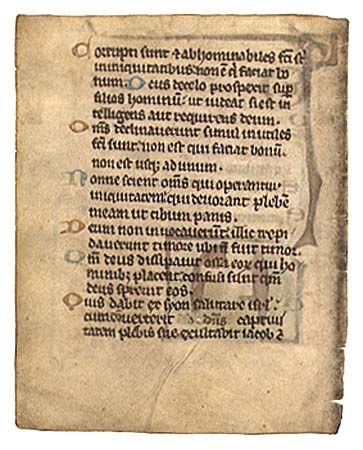 Corrupti sunt ⁊ abhominabiles fc̄i st̄
in iniquitatibus non ē q̇ faciat bo
num. Deus de celo prospexit sup̄
filios hominū ut videat si est in
telligens aut requirens deum.
Om̄s declinauerunt simul inutiles
fc̄i sunt non est qui faciat bonū.
non est usq; ad unum.
Nonne scient om̄s qui operantur
iniquitatem qui deuorant plebē
meam ut cibum panis.
Deum non inuocauerūt illic trepi
dauerunt timore ubi nō fuit timor.
Qm̄ deus dissipauit ossa eor̄ qui ho
minib; placent confusi sunt qm̄
deus spreuit eos.
Quis dabit ex syon salutare isrl̄
cum conuerterit dn̄s captiui
tatem plebis sue exultabit iacob ⁊